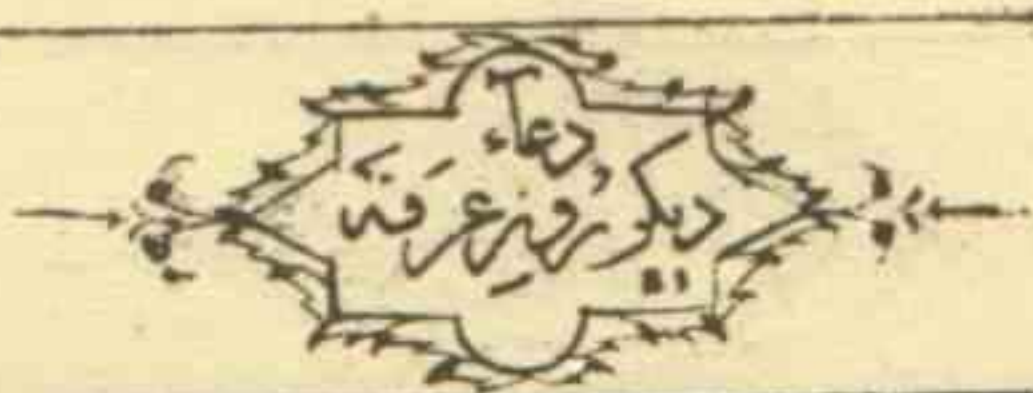 دعاء
ديگر روز عرفة